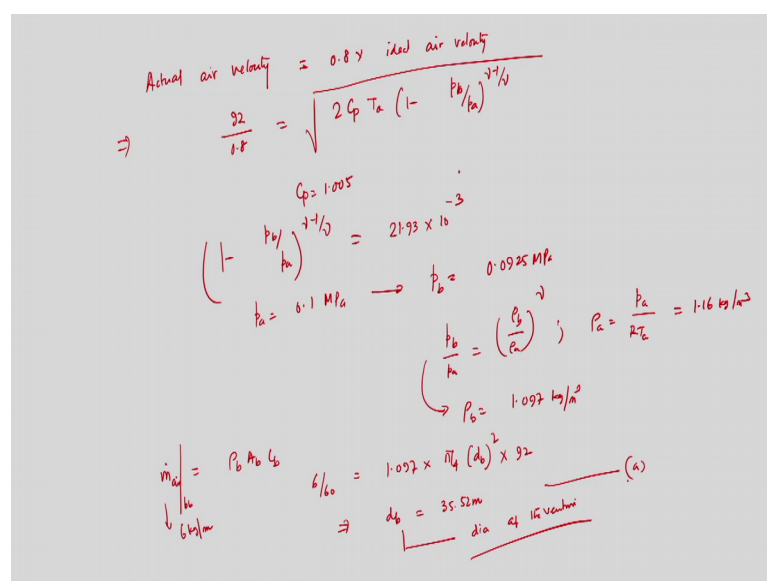 Actual air velocity = 0.8 × ideal air velocity
⇒ 92/0.8 = √(2 Cp Ta (1- pb/pa)^γ-1/γ)
Cp = 1.005
(1- pb/pa)^γ-1/γ = 21.93 × 10^-3
pa = 0.1 MPa → pb = 0.0925 MPa
pb/pa = (ρb/ρa)^γ ; ρa = pa/RTa = 1.16 kg/m³
ρb = 1.097 kg/m³
ṁair|bb = ρb Ab Cb 6/60 = 1.097 × π/4 (db)² × 92
6 kg/m ⇒ db = 35.52m (a)
dia of the venturi